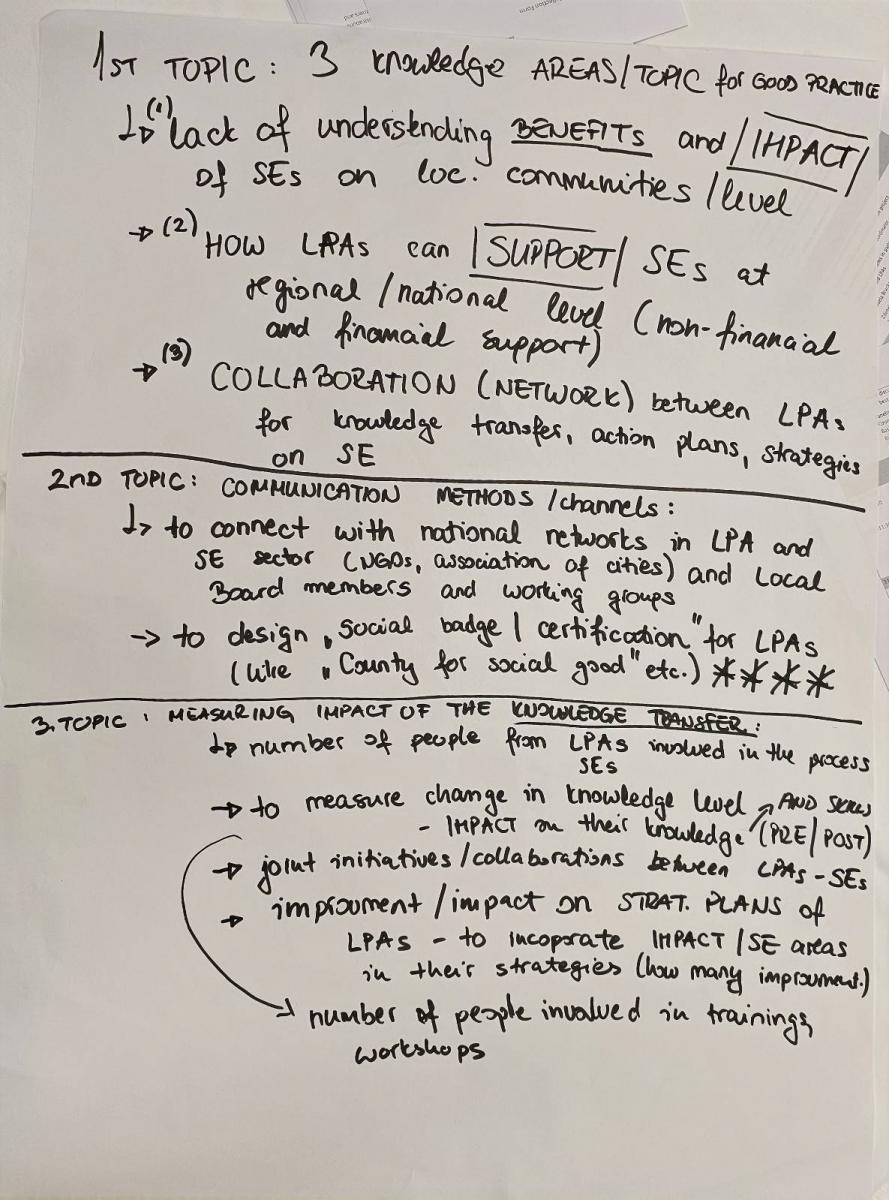 1ST TOPIC: 3 knowledge AREAS/TOPIC for GOOD PRACTICE
(1) lack of understending BENEFITS and /IMPACT/
of SEs on loc. communities/level
→ (2) HOW LPAs can /SUPPORT/ SEs at
regional/national level (non-financial
and financial support)
→ (3) COLLABORATION (NETWORK) between LPAs
for knowledge transfer, action plans, strategies
on SE
2ND TOPIC: COMMUNICATION METHODS/channels:
↳ to connect with national networks in LPA and
SE sector (NGOs, association of cities) and Local
Board members and working groups
→ to design „Social badge/certification" for LPAs
(like „County for social good" etc.) ****
3. TOPIC: MEASURING IMPACT OF THE KNOWLEDGE TRANSFER:
↳ number of people from LPAs involved in the process
SEs
→ to measure change in knowledge level AND SKILLS
- IMPACT on their knowledge (PRE/POST)
→ joint initiatives/collaborations between LPAs-SEs
→ improvment/impact on STRAT. PLANS of
LPAs - to incoporate IMPACT/SE areas
in their strategies (how many improvment.)
→ number of people involved in trainings,
workshops